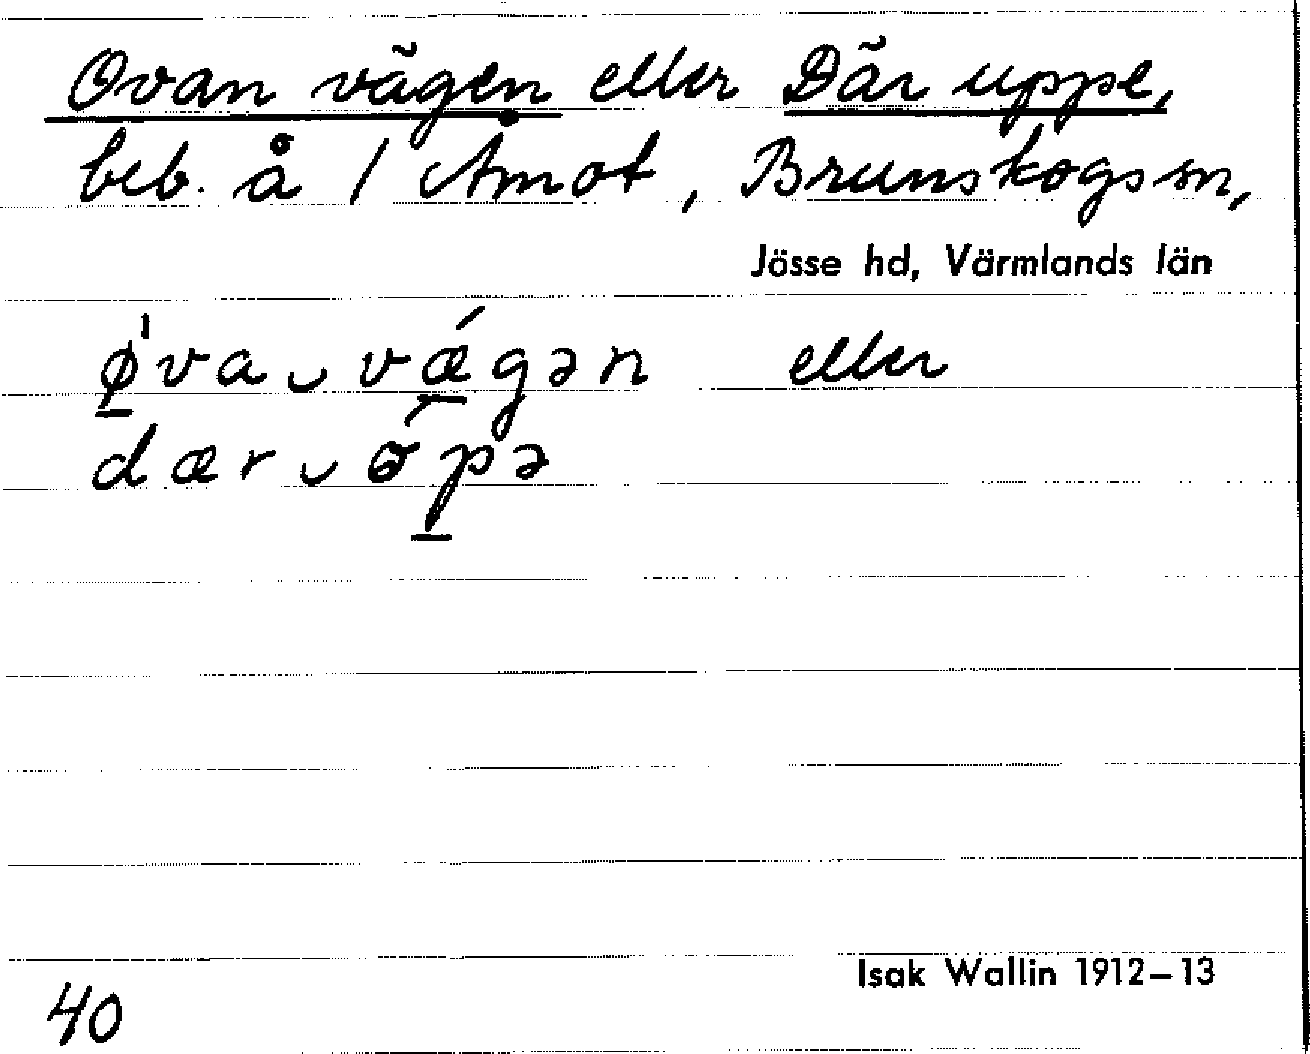 Ovan vägen eller Där uppe,
beb. å 1 Åmot, Brunskogs sn,
Jösse hd, Värmlands län
ø̱̍va‿vǽ̱gən eller
dær‿ɞ́p̱ə
Isak Wallin 1912–13
40